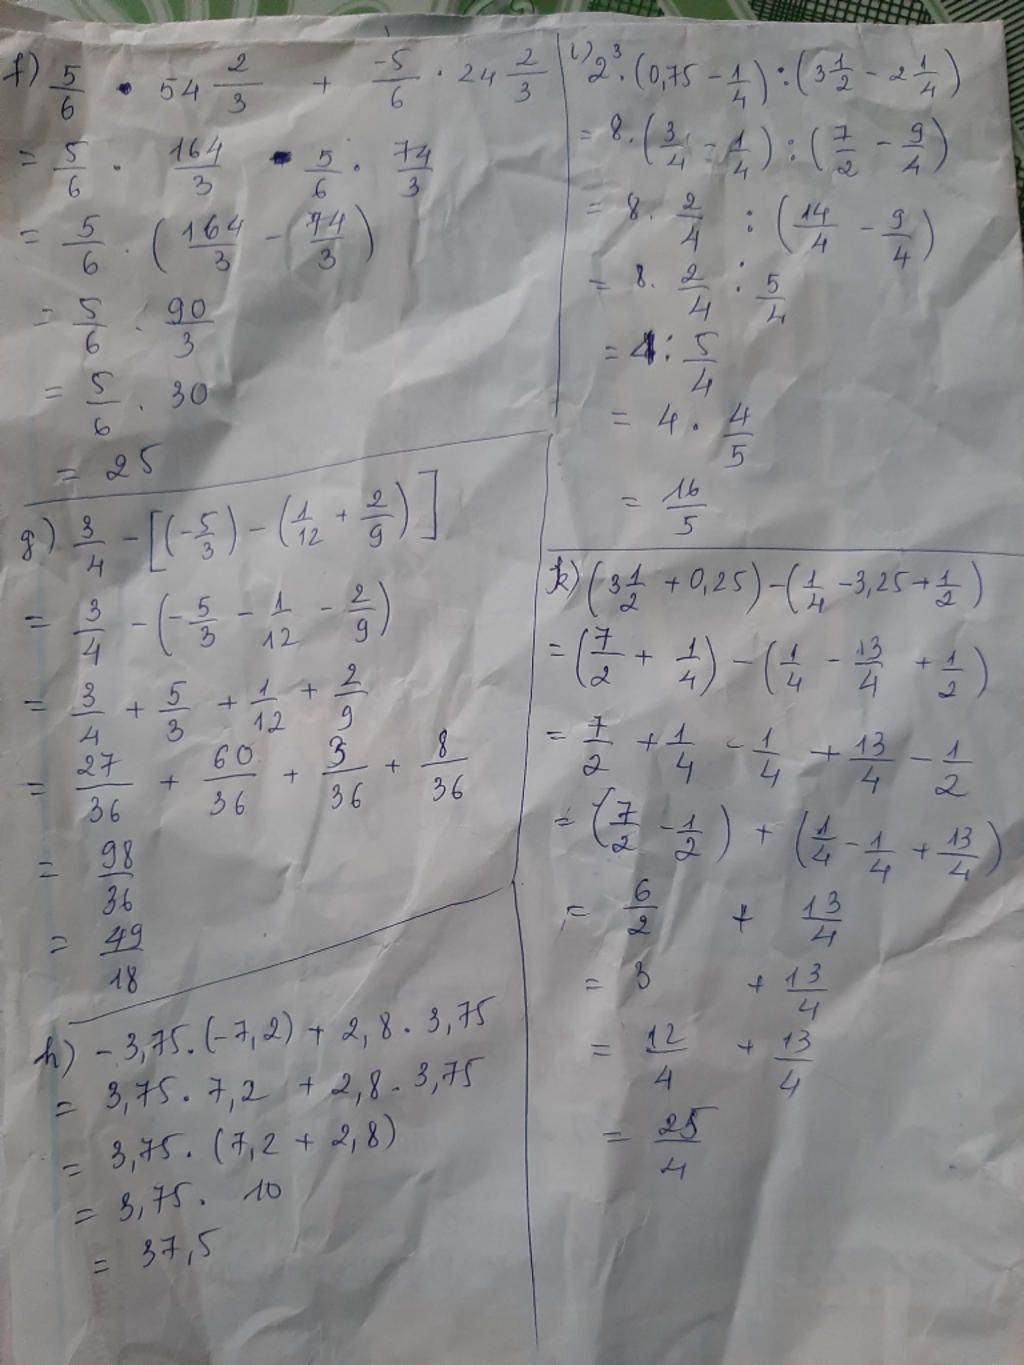 f) 5/6 . 54 2/3 + -5/6 . 24 2/3
= 5/6 . 164/3 - 5/6 . 74/3
= 5/6 . (164/3 - 74/3)
= 5/6 . 90/3
= 5/6 . 30
= 25
g) 3/4 - [(-5/3) - (1/12 + 2/9)]
= 3/4 - (-5/3 - 1/12 - 2/9)
= 3/4 + 5/3 + 1/12 + 2/9
= 27/36 + 60/36 + 3/36 + 8/36
= 98/36
= 49/18
h) -3,75.(-7,2) + 2,8 . 3,75
= 3,75 . 7,2 + 2,8 . 3,75
= 3,75 . (7,2 + 2,8)
= 3,75 . 10
= 37,5
i) 2³.(0,75 - 1/4) : (3 1/2 - 2 1/4)
= 8.(3/4 - 1/4) : (7/2 - 9/4)
= 8. 2/4 : (14/4 - 9/4)
= 8. 2/4 : 5/4
= 4 : 5/4
= 4 . 4/5
= 16/5
k) (3 1/2 + 0,25) - (1/4 - 3,25 + 1/2)
= (7/2 + 1/4) - (1/4 - 13/4 + 1/2)
= 7/2 + 1/4 - 1/4 + 13/4 - 1/2
= (7/2 - 1/2) + (1/4 - 1/4 + 13/4)
= 6/2 + 13/4
= 3 + 13/4
= 12/4 + 13/4
= 25/4